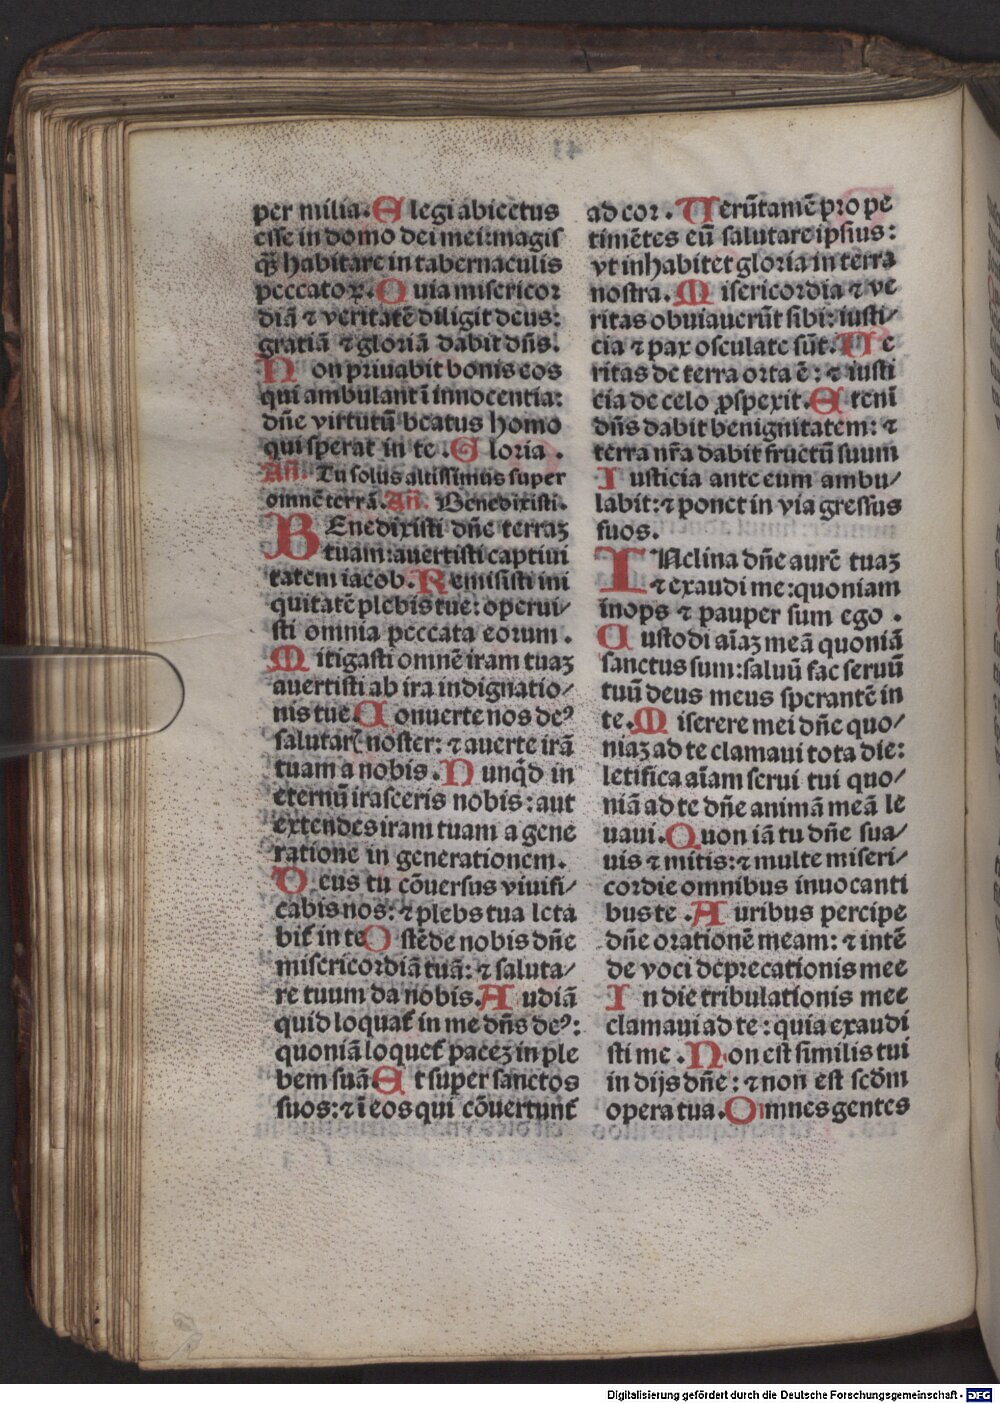 per milia. Elegi abiectus
esse in domo dei mei: magis
q̃ habitare in tabernaculis
peccatoꝝ. Quia misericor
diā ⁊ veritatē diligit deus:
gratiā ⁊ gloriā dabit dn̄s.
Non priuabit bonis eos
qui ambulant ī innocentia:
dn̄e virtutū beatus homo
qui sperat in te. Gloria.
An̄. Tu solus altissimus super
omnē terrā. An̄. Benedixisti.
BEnedixisti dn̄e terraꝫ
tuam: auertisti captiui
tatem iacob. Remisisti ini
quitatē plebis tue: operui/
sti omnia peccata eorum.
Mitigasti omnē iram tuaꝫ
auertisti ab ira indignatio/
nis tue. Conuerte nos deꝰ
salutarꝭ noster: ⁊ auerte irā
tuam a nobis. Nunqͥd in
eternū irasceris nobis: aut
extendes iram tuam a gene
ratione in generationem.
Deus tu cōuersus viuifi/
cabis nos: ⁊ plebs tua leta
bit᷑ in te Ostēde nobis dn̄e
misericordiā tuā: ⁊ saluta/
re tuum da nobis. Audiā
quid loquat᷑ in me dn̄s deꝰ:
quoniā loquet᷑ paceꝫ in ple
bem suā Et super sanctos
suos: ⁊ ī eos qui cōuertunt᷑
ad cor. Uerūtamē prope
timētes eū salutare ipsius:
vt inhabitet gloria in terra
nostra. Misericordia ⁊ ve
ritas obuiauerūt sibi: iusti/
cia ⁊ pax osculate sūt. Ue
ritas de terra orta ē: ⁊ iusti
cia de celo ꝓspexit. Eteni
dn̄s dabit benignitatem: ⁊
terra nr̄a dabit fructū suum
Iusticia ante eum ambu/
labit: ⁊ ponet in via gressus
suos.
INclina dn̄e aurē tuaꝫ
⁊ exaudi me: quoniam
inops ⁊ pauper sum ego.
Custodi aīaꝫ meā quoniā
sanctus sum: saluū fac seruū
tuū deus meus sperantē in
te. Miserere mei dn̄e quo/
niaꝫ ad te clamaui tota die:
letifica aīam serui tui quo/
niā ad te dn̄e animā meā le
uaui. Quoniā tu dn̄e sua/
uis ⁊ mitis: ⁊ multe miseri/
cordie omnibus inuocanti
bus te. Auribus percipe
dn̄e orationē meam: ⁊ intē
de voci deprecationis mee
In die tribulationis mee
clamaui ad te: quia exaudi
sti me. Non est similis tui
in dijs dn̄e: ⁊ non est scd̄m
opera tua. Omnes gentes
Digitalisierung gefördert durch die Deutsche Forschungsgemeinschaft - DFG